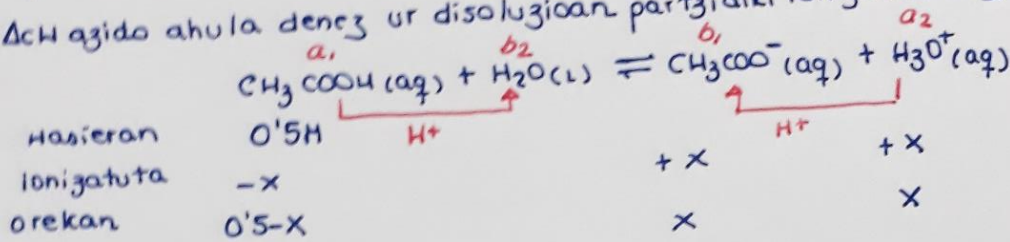 AcH azido ahula denez ur disoluzioan
a₁ b₂ b₁ a₂
CH₃COOH (aq) + H₂O(l) ⇌ CH₃COO⁻ (aq) + H₃O⁺ (aq)
H+ H+
Hasieran 0'5M
Ionizatuta -x +x +x
orekan 0'5-x x x